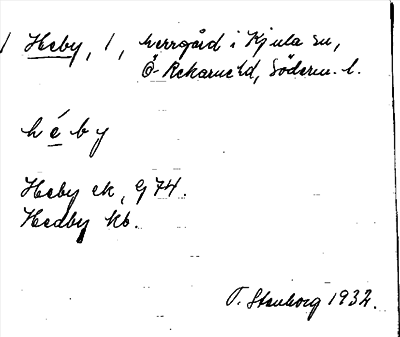 Heby, 1, herrgård i Kjula sn,
Ö. Rekarne hd, Söderm. l.
hé by
Heby ek, G 74.
Hedby kb.
T. Stenborg 1932.